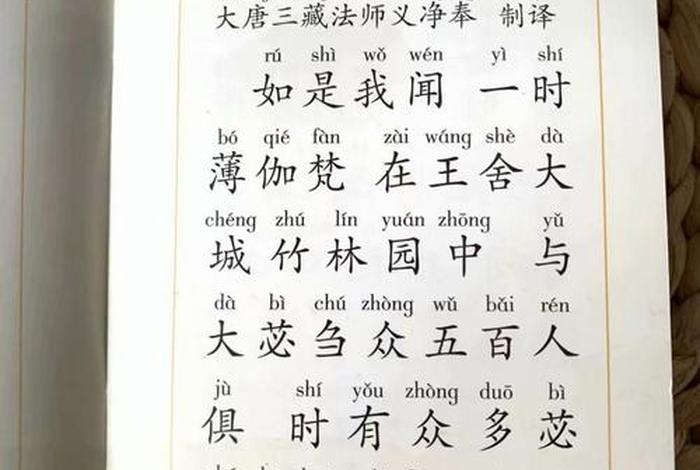 大唐三藏法师义净奉 制译
rú shì wǒ wén yì shí
如是我闻 一时
bó qié fàn zài wáng shè dà
薄伽梵 在王舍大
chéng zhú lín yuán zhōng yǔ
城竹林园中 与
dà bì chú zhòng wǔ bǎi rén
大苾刍众五百人
jù shí yǒu zhòng duō bì
俱 时有众多苾